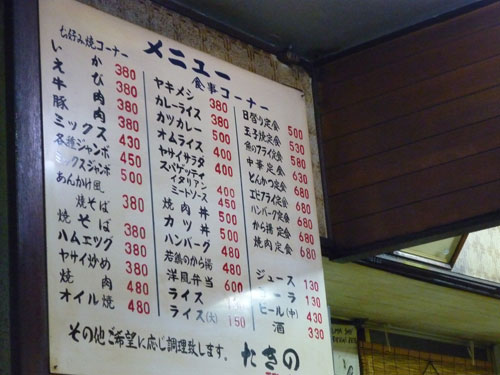 メニュー
お好み焼コーナー
いか 380
えび 380
牛肉 380
豚肉 380
ミックス 430
各種ジャンボ 450
ミックスジャンボ 500
あんかけ風
焼そば 380
焼そば 380
ハムエッグ 380
ヤサイ炒め 380
焼肉 480
オイル焼 480
食事コーナー
ヤキメシ 380
カレーライス 380
カツカレー 500
オムライス 400
ヤサイサラダ 400
スパゲッティ
イタリアン 400
ミートソース 450
焼肉丼 500
カツ丼 500
ハンバーグ 480
若鶏のから揚 480
洋風弁当 600
ライス
ライス(大) 150
日替り定食 500
玉子焼定食 530
魚のフライ定食 580
中華定食 630
とんかつ定食 680
エビフライ定食 680
ハンバーグ定食 680
から揚定食 680
焼肉定食 680
ジュース 130
ーラ 130
ビール(中) 430
酒 330
その他ご希望に応じ調理致します。
たきの